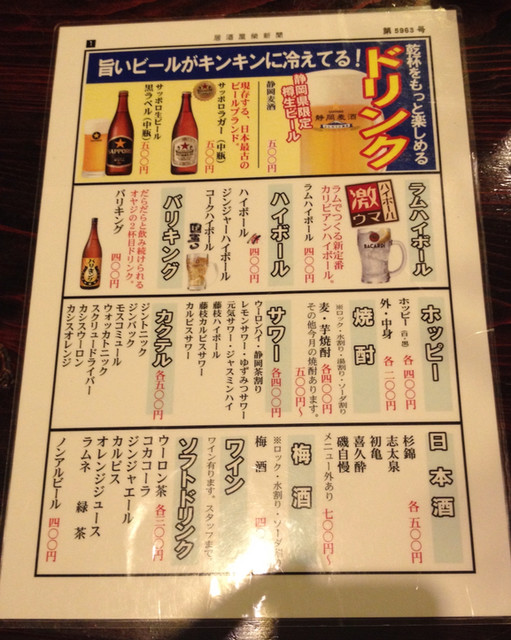 居酒屋榮新聞
第5963号
1
乾杯をもっと楽しめる
ドリンク
旨いビールがキンキンに冷えてる！
静岡県限定
樽生ビール
静岡麦酒
静岡麦酒
五〇〇円
現存する、日本最古の
ビールブランド。
サッポロラガー（中瓶）
五〇〇円
サッポロ生ビール
黒ラベル（中瓶）
五〇〇円
SAPPORO
ラムハイボール
ハイボール
激
ウマ
BACARDI
ラムでつくる新定番
カリビアンハイボール。
ラムハイボール
四〇〇円
ハイボール
ハイボール
四〇〇円
ジンジャーハイボール
コークハイボール
バリキング
だらだらと飲み続けられる
オヤジの2杯目ドリンク。
バリキング
四〇〇円
ホッピー
ホッピー（白・黒）
各四〇〇円
外・中身
各二〇〇円
焼酎
※ロック・水割り・湯割り・ソーダ割り
麦・芋焼酎
各四〇〇円
その他今月の焼酎あります。
五〇〇円～
サワー
各四〇〇円
ウーロンハイ・静岡茶割り
レモンサワー・ゆずみつサワー
元気サワー・ジャスミンハイ
藤枝ハイボール
藤枝カルピスサワー
カルピスサワー
カクテル
各五〇〇円
ジントニック
ジンバック
モスコミュール
ウォッカトニック
スクリュードライバー
カシスウーロン
カシスオレンジ
日本酒
杉錦
各五〇〇円
志太泉
初亀
喜久酔
磯自慢
メニュー外あり
七〇〇円～
梅酒
※ロック・水割り・ソーダ割
梅酒
四
ワイン
ワイン有ります。スタッフまで
ソフトドリンク
ウーロン茶
各三〇〇円
コカコーラ
ジンジャエール
カルピス
オレンジジュース
ラムネ
緑茶
ノンアルビール
四〇〇円